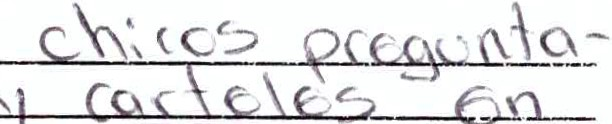 chicos pregunta-
y carteles en